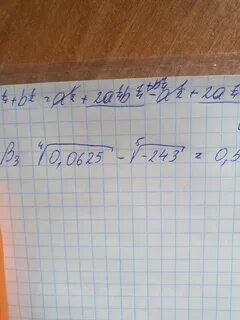 +b^{1/2} = a^{1/2} + 2a^{1/4}b^{1/4} + b^{1/2} - a^{1/2} + 2a
B3 ⁴√0,0625 - ⁵√-243 = 0,5